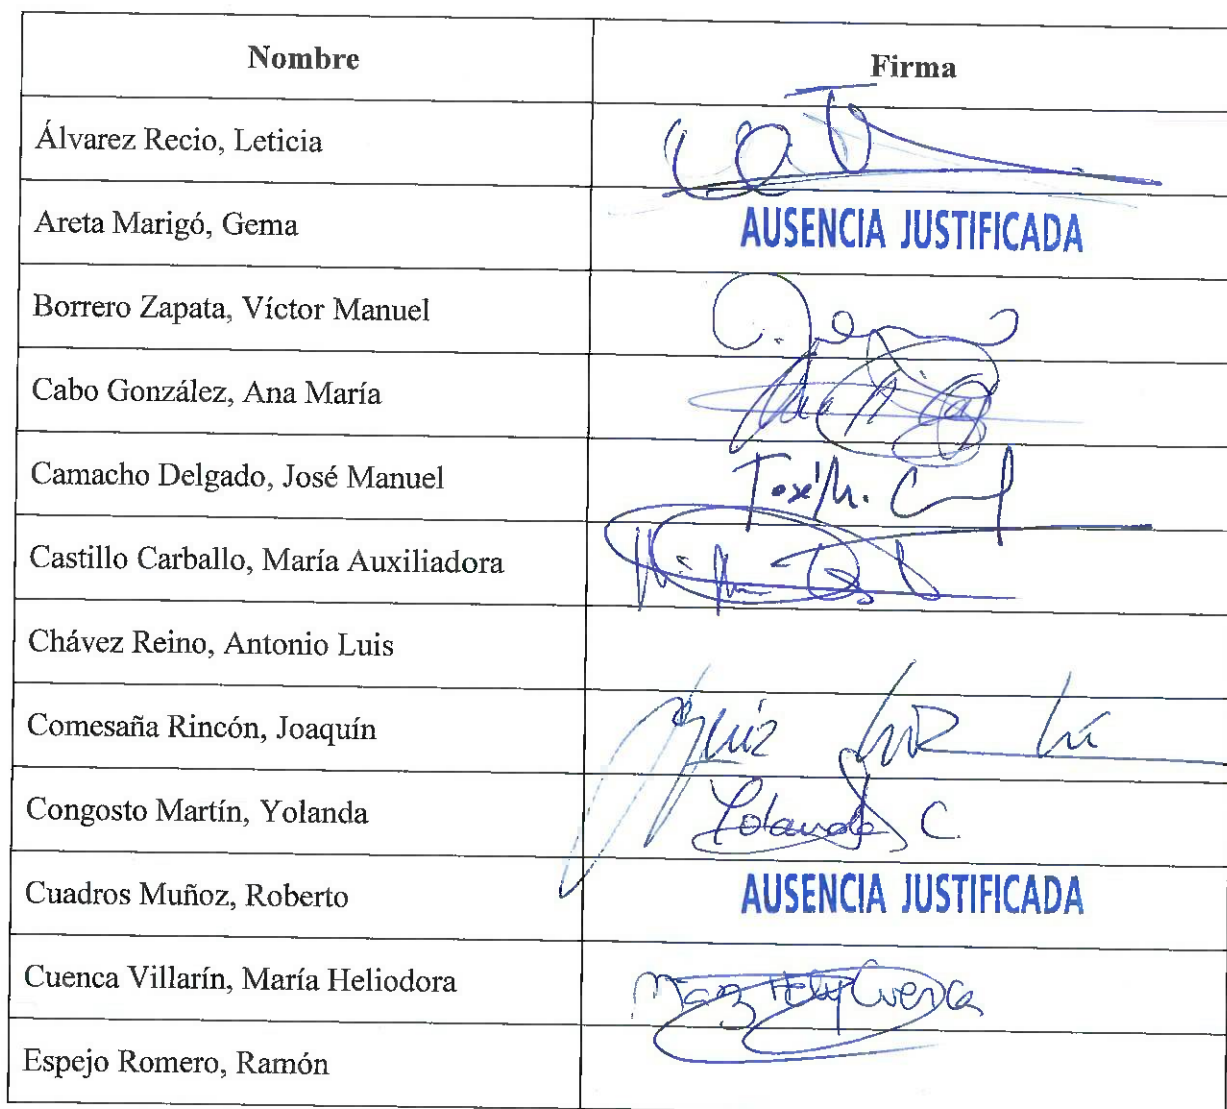 Nombre
Firma
Álvarez Recio, Leticia
Areta Marigó, Gema
AUSENCIA JUSTIFICADA
Borrero Zapata, Víctor Manuel
Cabo González, Ana María
Camacho Delgado, José Manuel
José M. C
Castillo Carballo, María Auxiliadora
Chávez Reino, Antonio Luis
Comesaña Rincón, Joaquín
Congosto Martín, Yolanda
Yolanda C.
Cuadros Muñoz, Roberto
AUSENCIA JUSTIFICADA
Cuenca Villarín, María Heliodora
Cuenca
Espejo Romero, Ramón